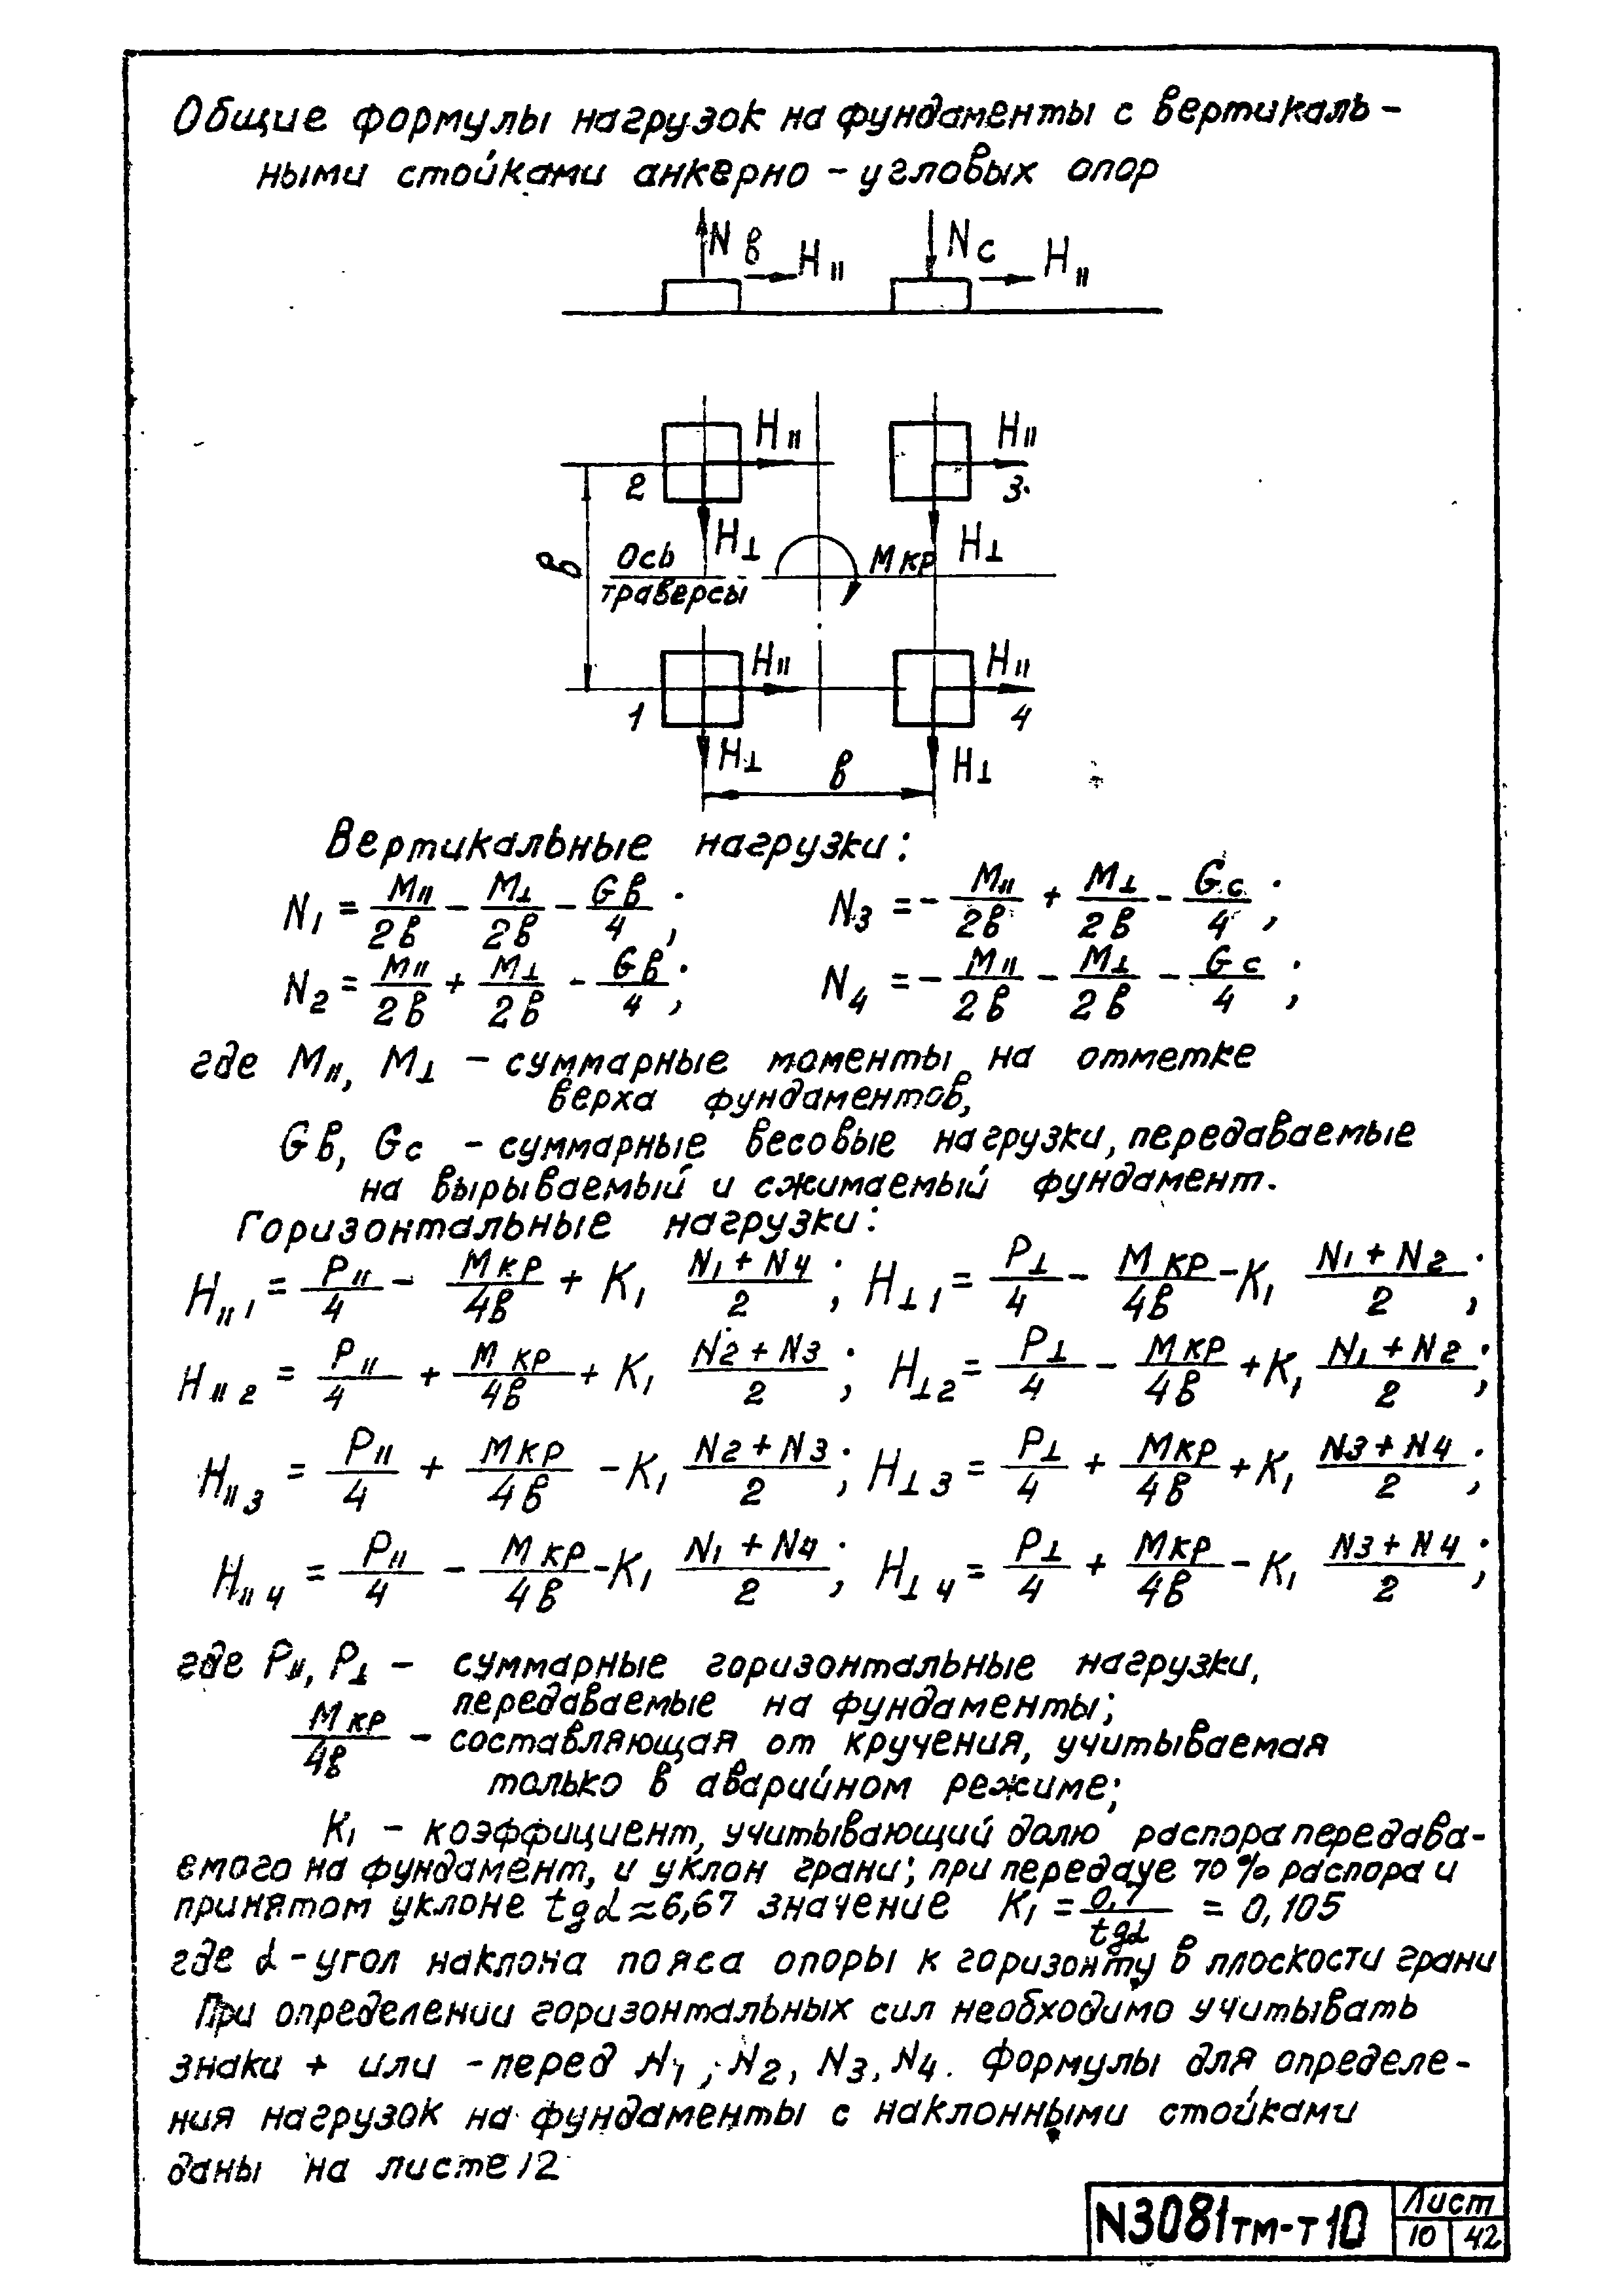 Общие формулы нагрузок на фундаменты с вертикаль-
ными стойками анкерно-угловых опор
Nв H∥ Nс H∥
H∥ H∥
2 3
H⊥ H⊥
в Ось траверсы Mкр
H∥ H∥
1 4
H⊥ в H⊥
Вертикальные нагрузки:
N1 = M∥/2в - M⊥/2в - Gв/4; N3 = - M∥/2в + M⊥/2в - Gс/4;
N2 = M∥/2в + M⊥/2в - Gв/4; N4 = - M∥/2в - M⊥/2в - Gс/4;
где M∥, M⊥ - суммарные моменты на отметке
верха фундаментов,
Gв, Gс - суммарные весовые нагрузки, передаваемые
на вырываемый и сжимаемый фундамент.
Горизонтальные нагрузки:
H∥1 = P∥/4 - Mкр/4в + K1 (N1+N4)/2; H⊥1 = P⊥/4 - Mкр/4в - K1 (N1+N2)/2;
H∥2 = P∥/4 + Mкр/4в + K1 (N2+N3)/2; H⊥2 = P⊥/4 - Mкр/4в + K1 (N1+N2)/2;
H∥3 = P∥/4 + Mкр/4в - K1 (N2+N3)/2; H⊥3 = P⊥/4 + Mкр/4в + K1 (N3+N4)/2;
H∥4 = P∥/4 - Mкр/4в - K1 (N1+N4)/2; H⊥4 = P⊥/4 + Mкр/4в - K1 (N3+N4)/2;
где P∥, P⊥ - суммарные горизонтальные нагрузки,
передаваемые на фундаменты;
Mкр/4в - составляющая от кручения, учитываемая
только в аварийном режиме;
K1 - коэффициент, учитывающий долю распора передава-
емого на фундамент, и уклон грани; при передаче 70% распора и
принятом уклоне tgα≈6,67 значение K1 = 0,7/tgα = 0,105
где α - угол наклона пояса опоры к горизонту в плоскости грани
При определении горизонтальных сил необходимо учитывать
знаки + или - перед N1, N2, N3, N4. Формулы для определе-
ния нагрузок на фундаменты с наклонными стойками
даны на листе 12
N3081тм-т10 Лист
10 42